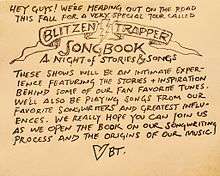 HEY GUYS! WE'RE HEADING OUT ON THE ROAD
THIS FALL FOR A VERY SPECIAL TOUR CALLED
BLITZEN TRAPPER
SONGBOOK
A NIGHT OF STORIES & SONGS
THESE SHOWS WILL BE AN INTIMATE EXPER-
IENCE FEATURING THE STORIES + INSPIRATION
BEHIND SOME OF OUR FAN FAVORITE TUNES.
WE'LL ALSO BE PLAYING SONGS FROM OUR
FAVORITE SONGWRITERS AND GREATEST INFLU-
ENCES. WE REALLY HOPE YOU CAN JOIN US
AS WE OPEN THE BOOK ON OUR SONGWRITING
PROCESS AND THE ORIGINS OF OUR MUSIC!
♡BT.